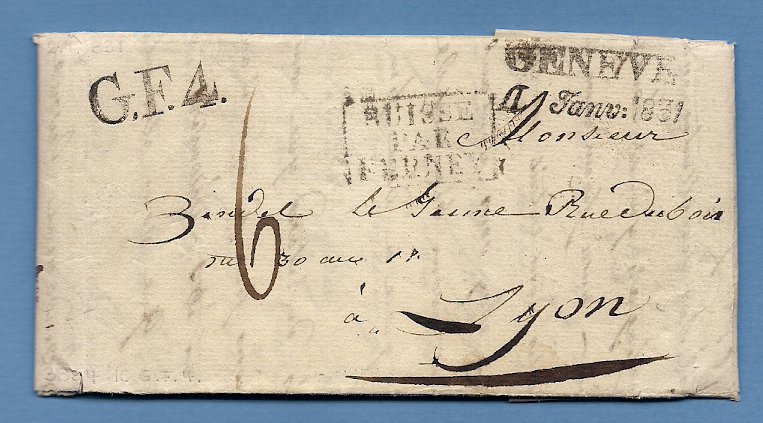 G.F.4.
GENEVE
Janv: 1831
SUISSE
PAR
FERNEY
Monsieur
le Jeune Rue Dubois
30 au 1r
6
à Lyon
G.F.4.